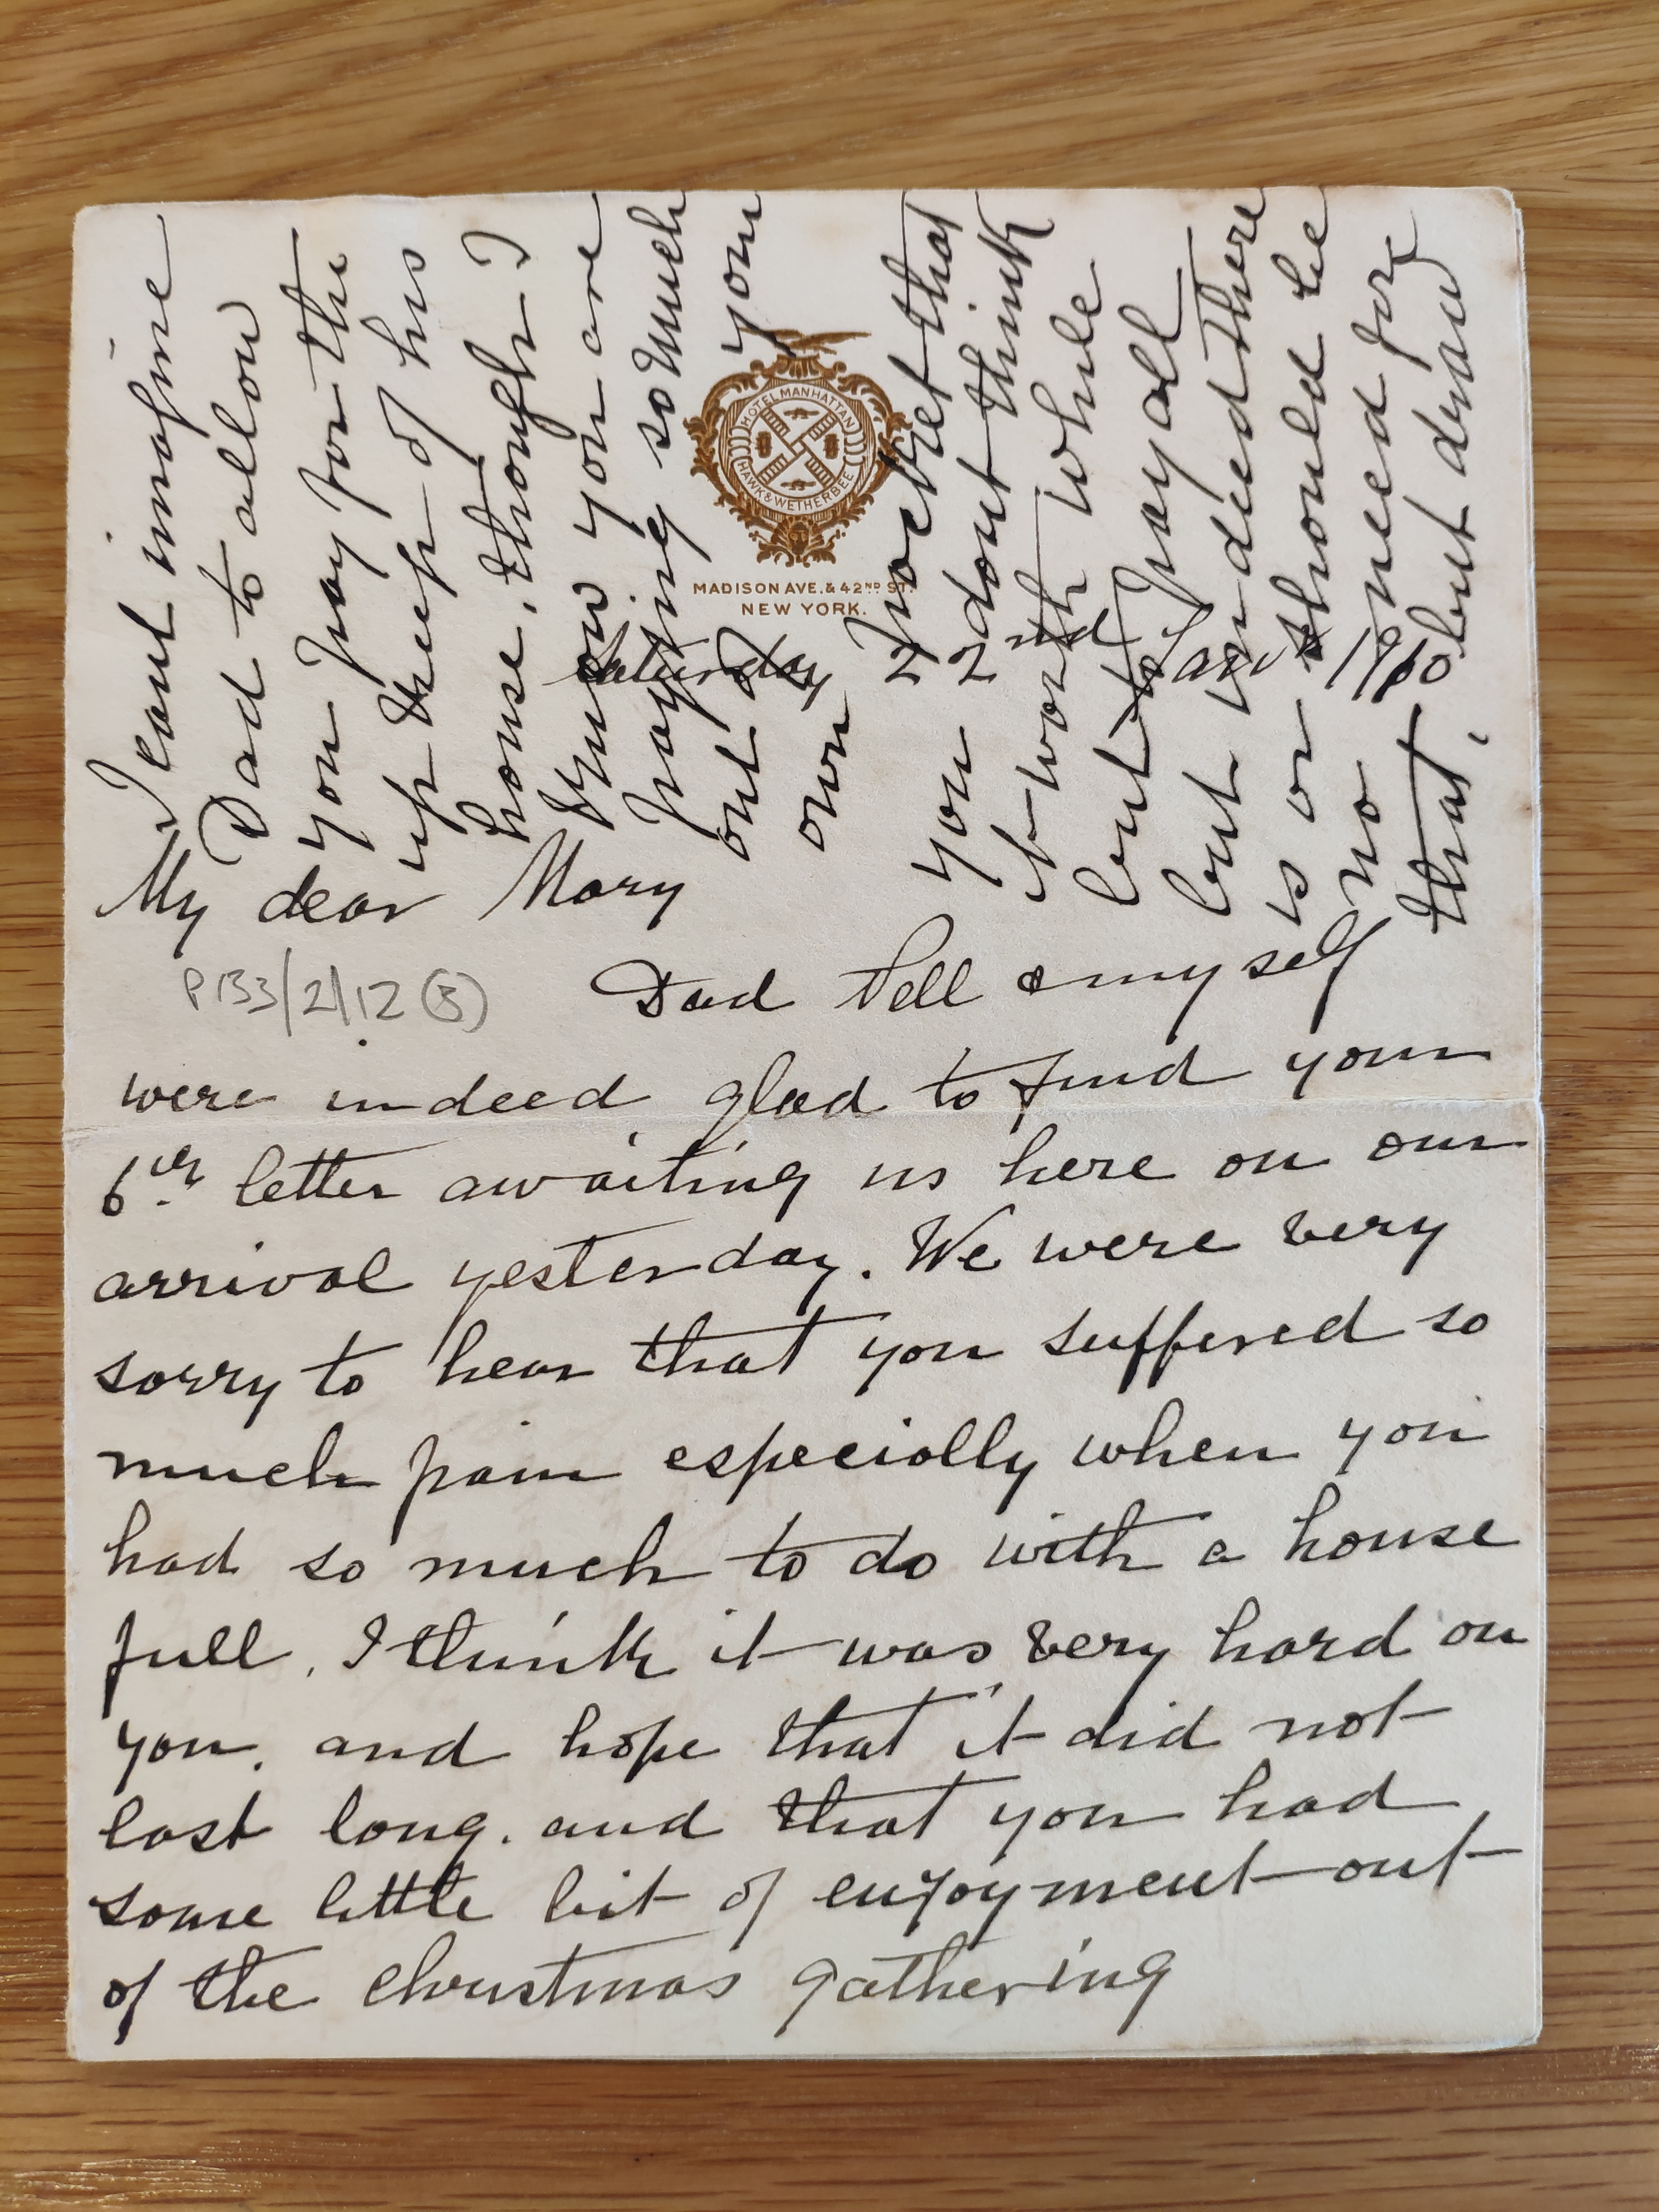 HOTEL MANHATTAN
HAWK & WETHERBEE
MADISON AVE. & 42ND ST.
NEW YORK.
Saturday 22nd Jany 1910
My dear Mary
PB3/2/12 (5)
Dad Nell & myself
were indeed glad to find your
6th letter awaiting us here on our
arrival yesterday. We were very
sorry to hear that you suffered so
much pain especially when you
had so much to do with a house
full, I think it was very hard on
you, and hope that it did not
last long. and that you had
some little bit of enjoyment out
of the Christmas gathering
I cant imagine
Dad to allow
you pay for the
up keep of his
house, though I
know you are
paying so much
out of your
own pocket that
you dont think
it worth while
but pay all
but indeed there
is or should be
no need for
that, but draw